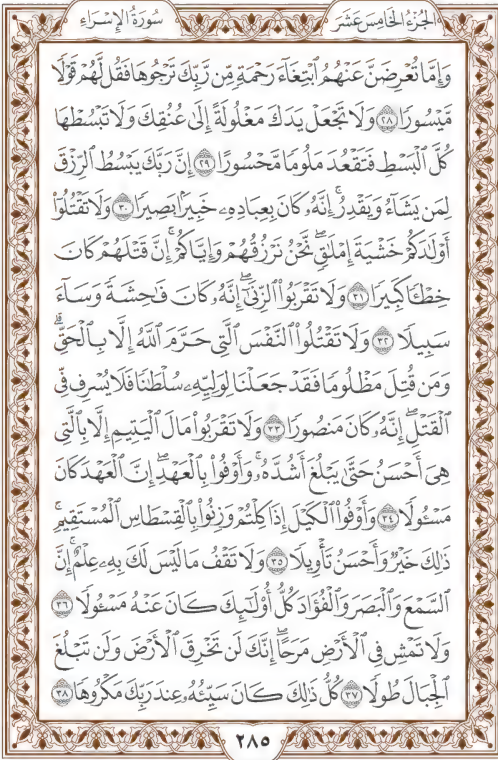 الجُزْءُ الخَامِسَ عَشَرَ
سُورَةُ الإِسْرَاءِ
وَإِمَّا تُعْرِضَنَّ عَنْهُمُ ٱبْتِغَآءَ رَحْمَةٍ مِّن رَّبِّكَ تَرْجُوهَا فَقُل لَّهُمْ قَوْلًا
مَّيْسُورًا ٢٨ وَلَا تَجْعَلْ يَدَكَ مَغْلُولَةً إِلَىٰ عُنُقِكَ وَلَا تَبْسُطْهَا
كُلَّ ٱلْبَسْطِ فَتَقْعُدَ مَلُومًا مَّحْسُورًا ٢٩ إِنَّ رَبَّكَ يَبْسُطُ ٱلرِّزْقَ
لِمَن يَشَآءُ وَيَقْدِرُۚ إِنَّهُۥ كَانَ بِعِبَادِهِۦ خَبِيرًۢا بَصِيرًا ٣٠ وَلَا تَقْتُلُوٓا۟
أَوْلَـٰدَكُمْ خَشْيَةَ إِمْلَـٰقٍۖ نَّحْنُ نَرْزُقُهُمْ وَإِيَّاكُمْۚ إِنَّ قَتْلَهُمْ كَانَ
خِطْـًٔا كَبِيرًا ٣١ وَلَا تَقْرَبُوا۟ ٱلزِّنَىٰٓۖ إِنَّهُۥ كَانَ فَـٰحِشَةً وَسَآءَ
سَبِيلًا ٣٢ وَلَا تَقْتُلُوا۟ ٱلنَّفْسَ ٱلَّتِى حَرَّمَ ٱللَّهُ إِلَّا بِٱلْحَقِّۗ
وَمَن قُتِلَ مَظْلُومًا فَقَدْ جَعَلْنَا لِوَلِيِّهِۦ سُلْطَـٰنًا فَلَا يُسْرِف فِّى
ٱلْقَتْلِۖ إِنَّهُۥ كَانَ مَنصُورًا ٣٣ وَلَا تَقْرَبُوا۟ مَالَ ٱلْيَتِيمِ إِلَّا بِٱلَّتِى
هِىَ أَحْسَنُ حَتَّىٰ يَبْلُغَ أَشُدَّهُۥۚ وَأَوْفُوا۟ بِٱلْعَهْدِۖ إِنَّ ٱلْعَهْدَ كَانَ
مَسْـُٔولًا ٣٤ وَأَوْفُوا۟ ٱلْكَيْلَ إِذَا كِلْتُمْ وَزِنُوا۟ بِٱلْقِسْطَاسِ ٱلْمُسْتَقِيمِۚ
ذَٰلِكَ خَيْرٌ وَأَحْسَنُ تَأْوِيلًا ٣٥ وَلَا تَقْفُ مَا لَيْسَ لَكَ بِهِۦ عِلْمٌۚ إِنَّ
ٱلسَّمْعَ وَٱلْبَصَرَ وَٱلْفُؤَادَ كُلُّ أُو۟لَـٰٓئِكَ كَانَ عَنْهُ مَسْـُٔولًا ٣٦
وَلَا تَمْشِ فِى ٱلْأَرْضِ مَرَحًاۖ إِنَّكَ لَن تَخْرِقَ ٱلْأَرْضَ وَلَن تَبْلُغَ
ٱلْجِبَالَ طُولًا ٣٧ كُلُّ ذَٰلِكَ كَانَ سَيِّئُهُۥ عِندَ رَبِّكَ مَكْرُوهًا ٣٨
٢٨٥